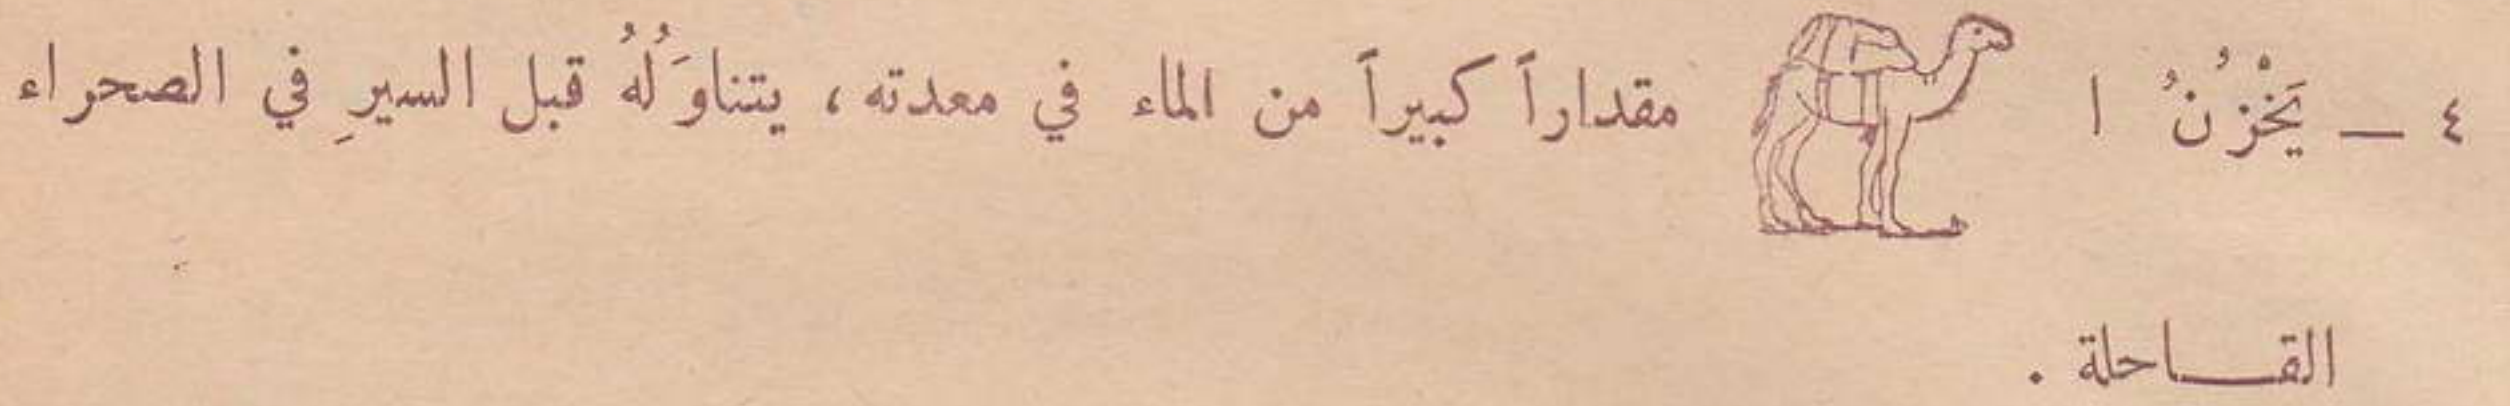 ٤ ــ يَخْزُنُ ا مقداراً كبيراً من الماء في معدته ، يتناوَلُهُ قبل السيرِ في الصحراء
القـــاحلة .